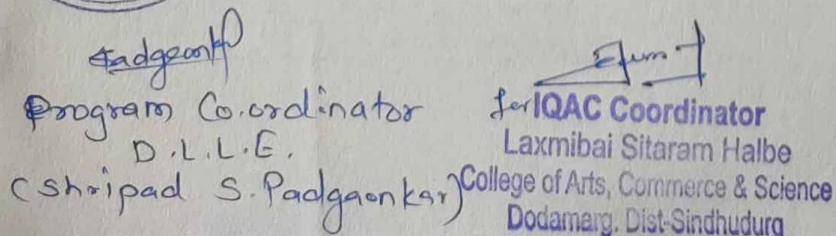 Program Co.ordinator
D.L.L.E.
(Shripad S. Padgaonkar)
for IQAC Coordinator
Laxmibai Sitaram Halbe
College of Arts, Commerce & Science
Dodamarg. Dist-Sindhudurg